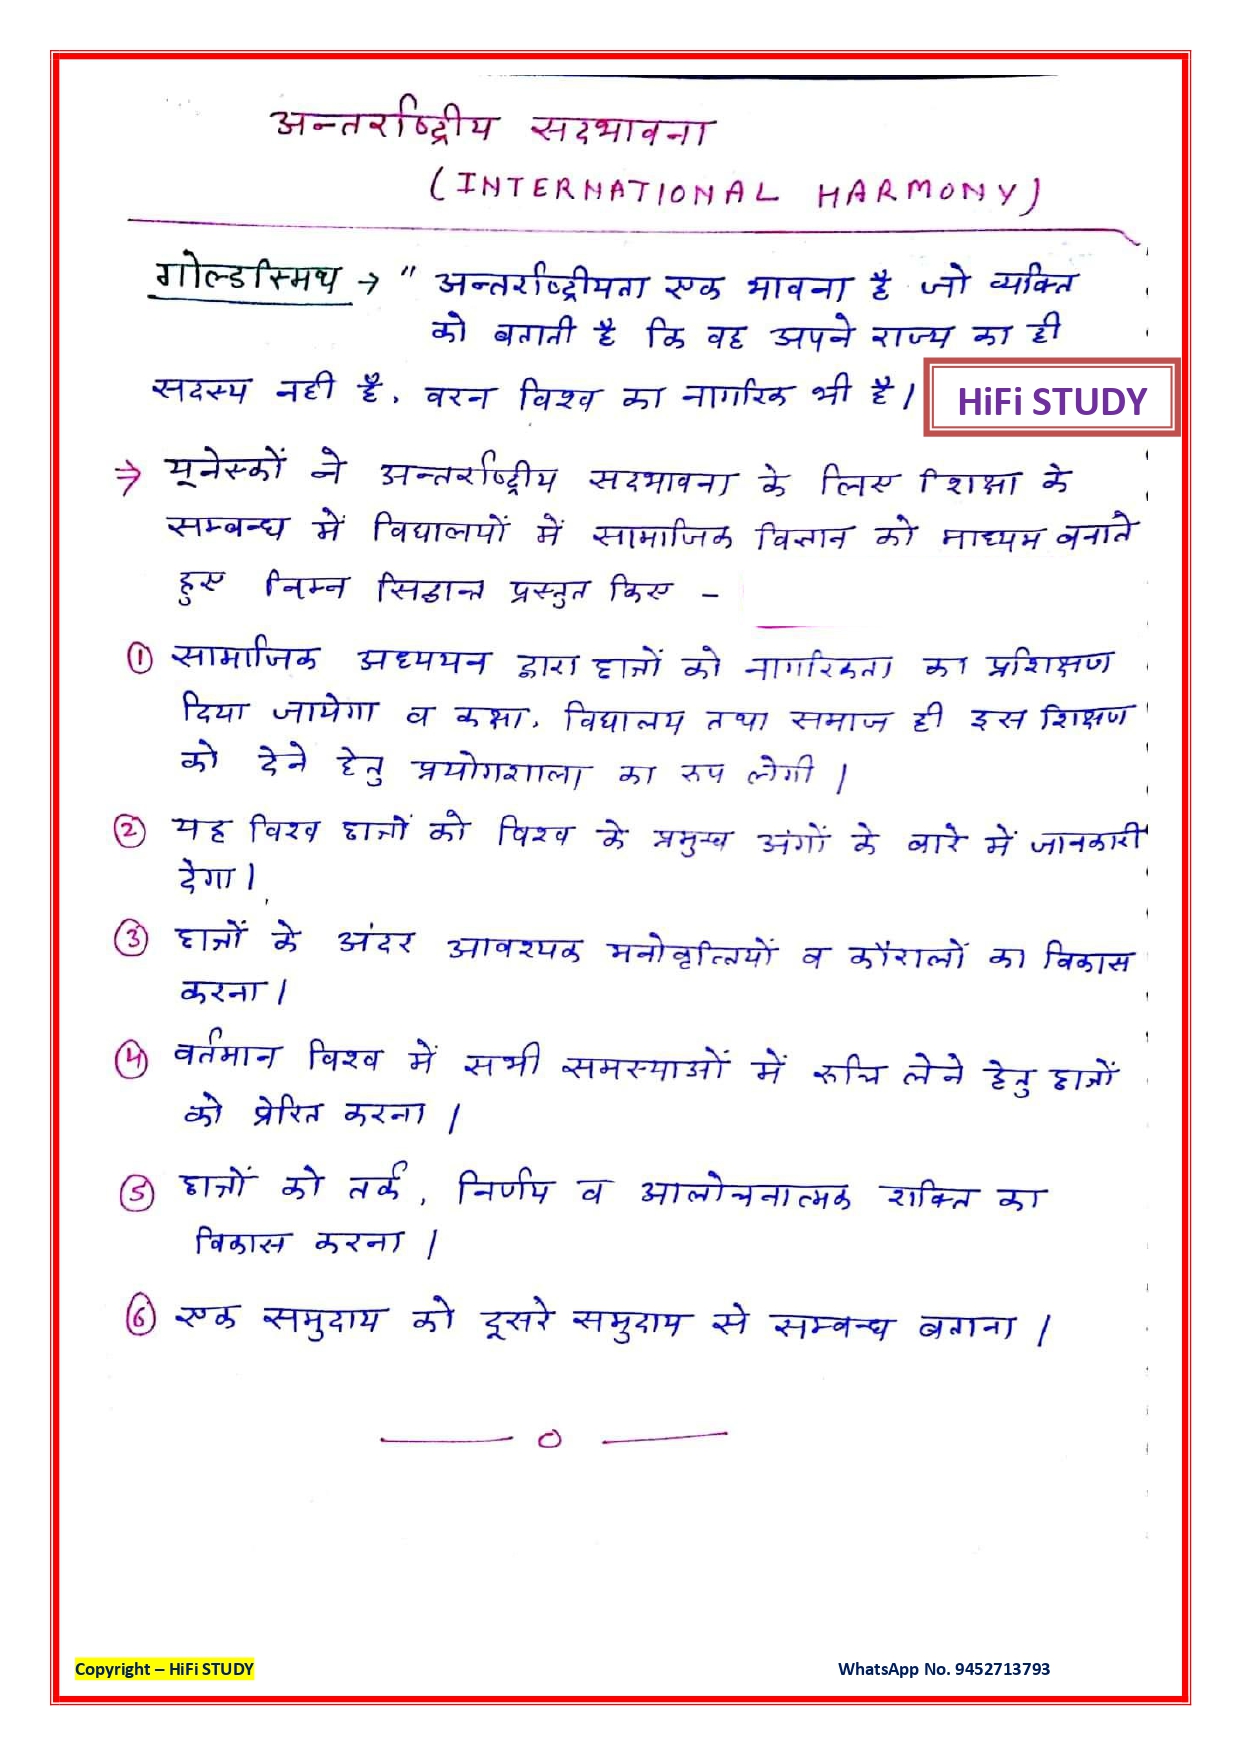 अन्तर्राष्ट्रीय सदभावना
(INTERNATIONAL HARMONY)
गोल्डस्मिथ → " अन्तर्राष्ट्रीयता एक भावना है जो व्यक्ति
को बताती है कि वह अपने राज्य का ही
सदस्य नही है, वरन विश्व का नागरिक भी है।
HiFi STUDY
⇒ यूनेस्कों ने अन्तर्राष्ट्रीय सदभावना के लिए शिक्षा के
सम्बन्ध में विद्यालयों में सामाजिक विज्ञान को माध्यम बनाते
हुए निम्न सिद्धान्त प्रस्तुत किए -
① सामाजिक अध्ययन द्वारा छात्रों को नागरिकता का प्रशिक्षण
दिया जायेगा व कक्षा, विद्यालय तथा समाज ही इस शिक्षण
को देने हेतु प्रयोगशाला का रूप लेगी।
② यह विश्व छात्रों को विश्व के प्रमुख अंगों के बारे में जानकारी
देगा।
③ छात्रों के अंदर आवश्यक मनोवृत्तियों व कौशलों का विकास
करना।
④ वर्तमान विश्व में सभी समस्याओं में रूचि लेने हेतु छात्रों
को प्रेरित करना।
⑤ छात्रों को तर्क, निर्णय व आलोचनात्मक शक्ति का
विकास करना।
⑥ एक समुदाय को दूसरे समुदाय से सम्बन्ध बताना।
Copyright – HiFi STUDY
WhatsApp No. 9452713793